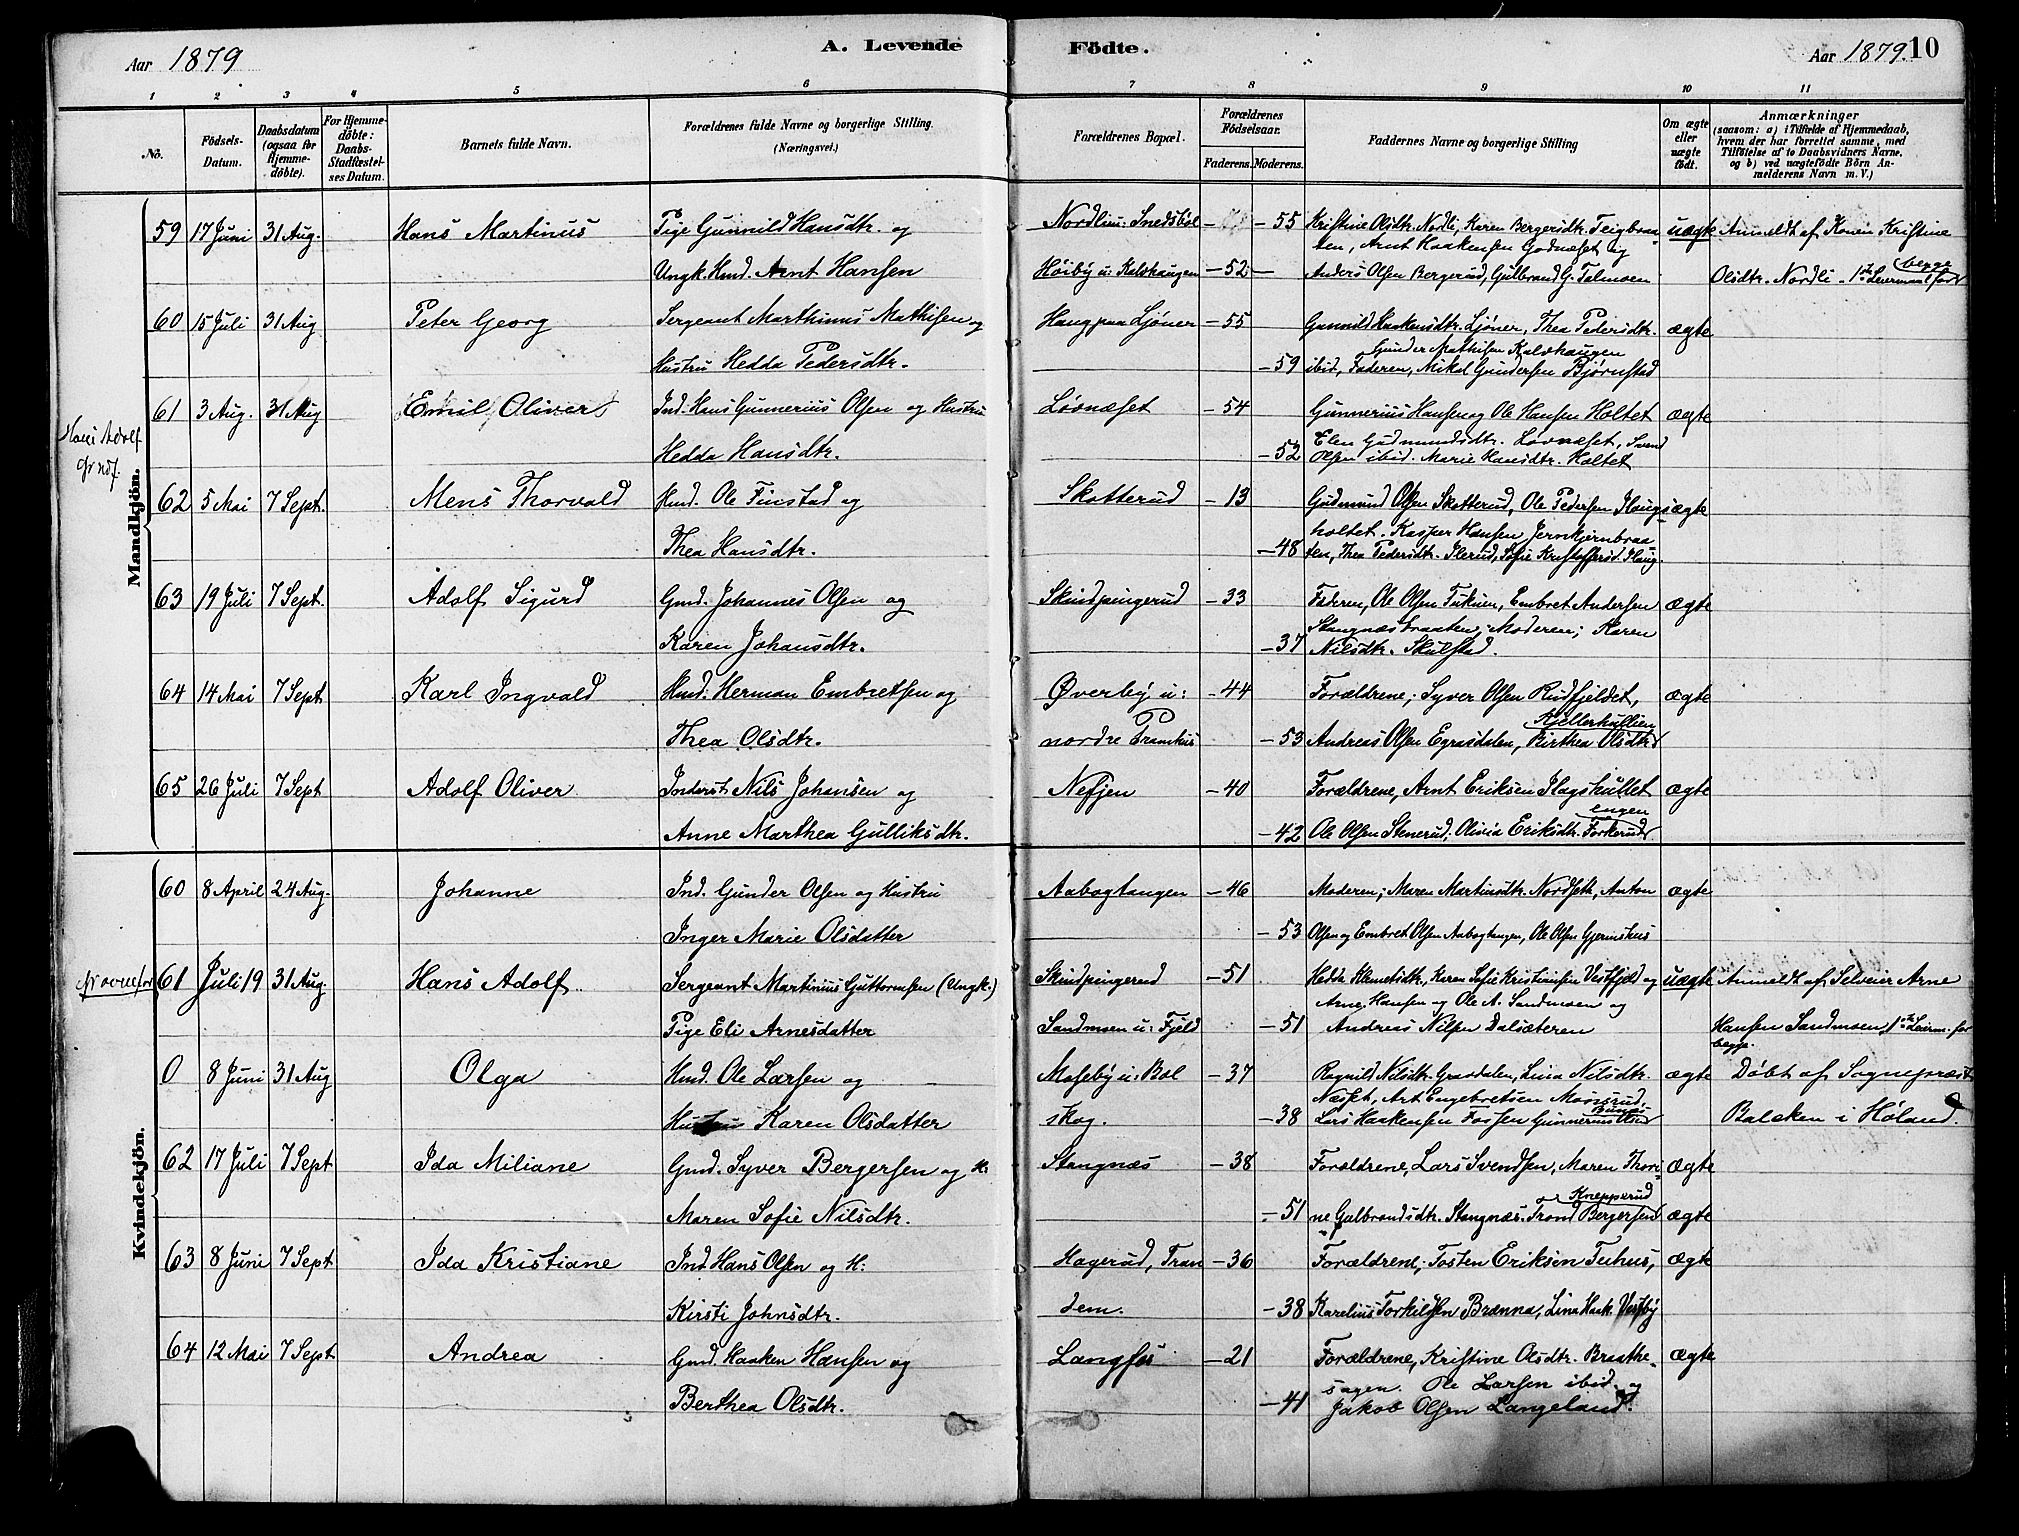 Aar 1879
A. Levende Födte.
Aar 1879. 10
1 2 3 4 5 6 7 8 9 10 11
No.
Födsels-Datum.
Daabsdatum (ogsaa for Hjemmedöbte).
For Hjemmedöbte: Daabs-Stadfæstelses Datum.
Barnets fulde Navn.
Forældrenes fulde Navne og borgerlige Stilling. (Næringsvei.)
Forældrenes Bopæl.
Forældrenes Födselsaar.
Faderens. Moderens.
Faddernes Navne og borgerlige Stilling
Om ægte eller uægte födt.
Anmærkninger
(saasom: a) i Tilfælde af Hjemmedaab,
hvem der har forrettet samme, med
Tilföielse af to Daabsvidners Navne,
og b) ved uægtefödte Börn An-
melderens Navn m. V.)
Mandkjön.
59 17 Juni 31 Aug. Hans Martinus Pige Gunnild Hansdtr. og Nordli u: Snedsböl - 55 Kristine Olsdtr. Nordli, Karen Bergersdtr. Teigbraa- uægte Anmeldt af Konen Kristine
ten, Arnt Haakensen Godnæset og
Ungk. Hmd. Arnt Hansen Höiby u: Kalshaugen - 52 - Anders Olsen Bergerud, Gulbrand G. Tolmoen Olsdtr. Nordli - 1ste Leiermaal for begge
60 15 Juli 31 Aug Peter Georg Sergeant Marthinus Mathisen og Haug paa Ljöner - 55 Gunnild Haakensdtr. Ljöner, Thea Pedersdtr. ægte
Gunder Mathisen Kalshaugen
Hustru Hedda Pedersdtr. - 59 ibid, Faderen, Mikel Gundersen Bjørnstad
Hans Adolf
61 3 Aug. 31 Aug Emil Oliver Ind. Hans Gunnerius Olsen og Hustru Lövnæset - 54 Gunnerius Hansen og Ole Hansen Holtet ægte
Elen Gudmundsdtr. Lövnæset, Svend
Hedda Hansdtr. - 52 Olsen ibid. Marie Hansdtr. Holtet
62 5 Mai 7 Sept. Mens Thorvald Hmd. Ole Finstad og Skotterud - 13 Gudmund Olsen Skotterud, Ole Pedersen Haugs- ægte
holtet. Kasper Hansen, Jernkjernbraa
Thea Hansdtr. - 48 ten, Thea Pedersdtr. Ilerud, Sofie Kristoffersd. Haug.
63 19 Juli 7 Sept. Adolf Sigurd Gmd. Johannes Olsen og Skindpungerud - 33 Faderen, Ole Olsen Tukuen, Embret Andersen ægte
Stangnæsbraaten; Moderen; Karen
Karen Johansdtr. - 37 Nilsdtr. Skulstad.
64 14 Mai 7 Sept. Karl Ingvald Hmd. Herman Embretsen og Överby u: - 44 Forældrene; Syver Olsen Rudfjeldet, ægte
Kjellerhullien
Thea Olsdtr. nordre - 53 Andreas Olsen Egrasdalen, Birthea Olsdtr
65 26 Juli 7 Sept Adolf Oliver Inderst Nils Johansen og Nesjen - 40 Forældrene, Arnt Eriksen Flagshullet ægte
engen
Anne Marthea Gulliksdtr. - 42 Ole Olsen Stenerud; Olivia Eriksdtr. Forkerud
Kvindekjön.
60 8 April 24 Aug. Johanne Ind. Gunder Olsen og Hustru Aabogtangen - 46 Moderen; Maren Martinsdtr. Nordseth, Anton ægte
Inger Marie Olsdatter - 53 Olsen og Embret Olsen Aabogtangen, Ole Olsen Gjermshus
61 Juli 19 31 Aug. Hans Adolf Sergeant Martinius Guttormsen (Ungk.) Skindpungerud - 51 Hedda Klemetsdtr, Karen Sofie Kristiansen Vestfjeld og uægte Anmeldt af Selveier Arne
Arne Hansen og Ole A. Sandmoen og
Pige Eli Arnesdatter Sandmoen u: Fjeld - 51 Andreas Nilsen Dalsæteren Hansen Sandmoen, 1ste Leierm. for
begge.
0 8 Juni 31 Aug Olga Hmd. Ole Larsen og Moseby u: Bol - 37 Ragnild Nilsdtr. Grasdalen, Lina Nilsdtr. ægte Döbt af Sogneprest
Næset, Art Engebretsen Monsrud,
Hustru Karen Olsdatter skog. - 38 Lars Haakensen Fossen Gunnerius Olsen Balcken i Höland.
62 17 Juli 7 Sept Ida Miliane Gmd. Syver Bergersen og H: Stangnæs - 38 Forældrene, Lars Svendsen, Maren Thori- ægte
Knepperud
Maren Sofie Nilsdtr. - 51 ne Gulbrandsdtr. Stangnæs. Trond Bergersen ægte
63 8 Juni 7 Sept Ida Kristiane Ind Hans Olsen og H: Hagerud, Tran - 36 Forældrene; Tosten Eriksen Tuhus, ægte
Kirsti Johnsdtr. dem. - 38 Karelius Torkildsen Brænna, Lina Haak. Vestby
64 12 Mai 7 Sept Andrea Gmd. Haaken Hansen og Langfos - 21 Forældrene, Kristine Olsdtr. Braathe- ægte
sagen. Ole Larsen ibid. og
Berthea Olsdtr. - 41 Jakob Olsen Langeland.